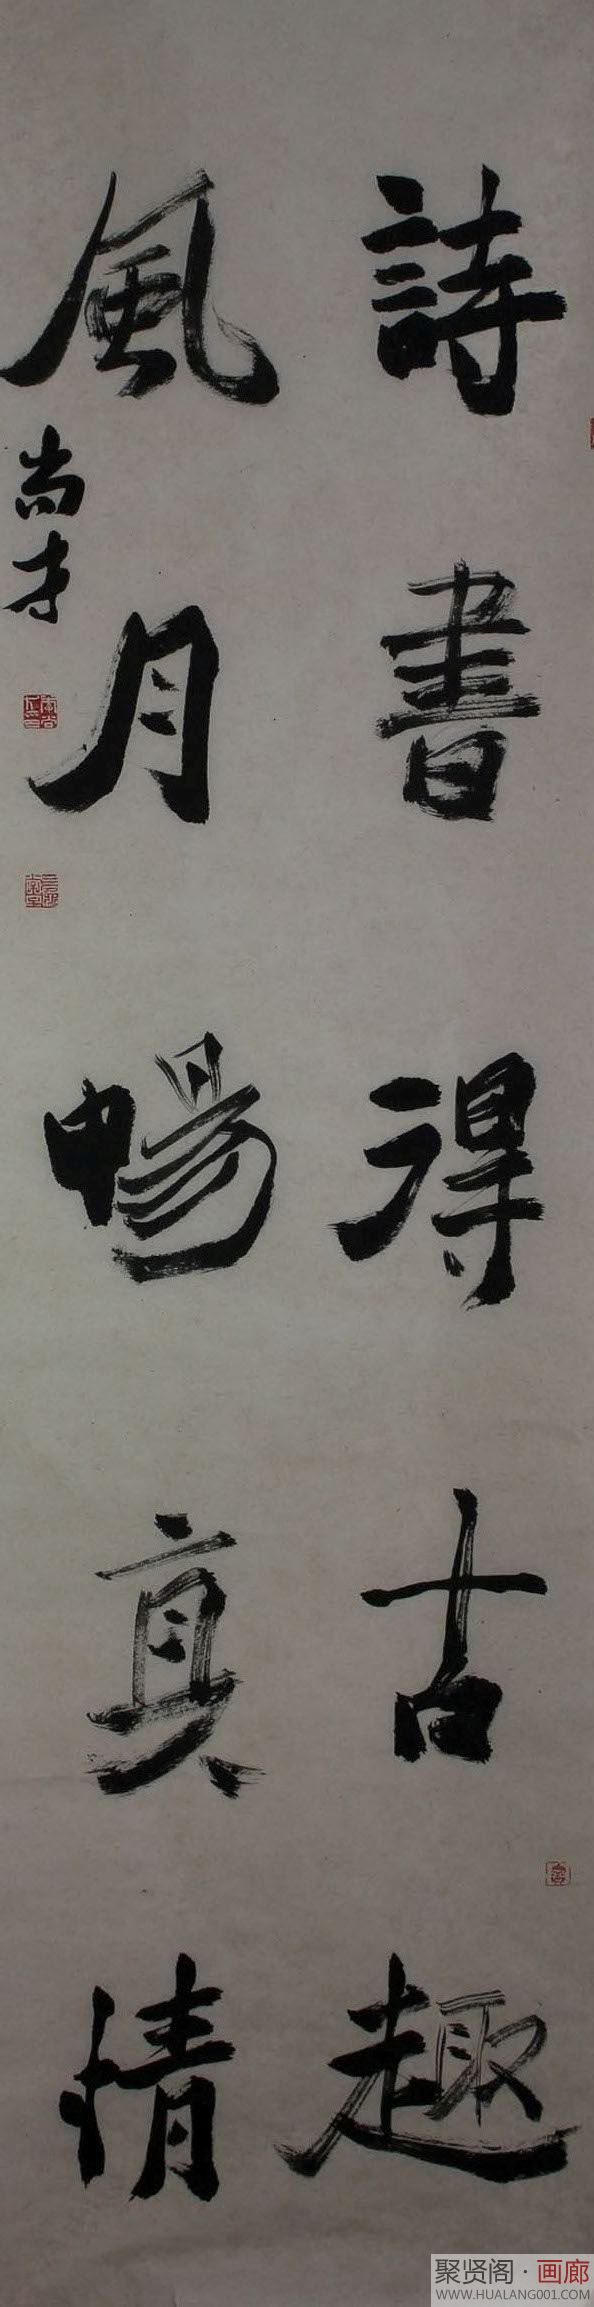 詩書得古趣
風月暢真情
尚才
聚贤阁·画廊
WWW.HUALANG001.COM